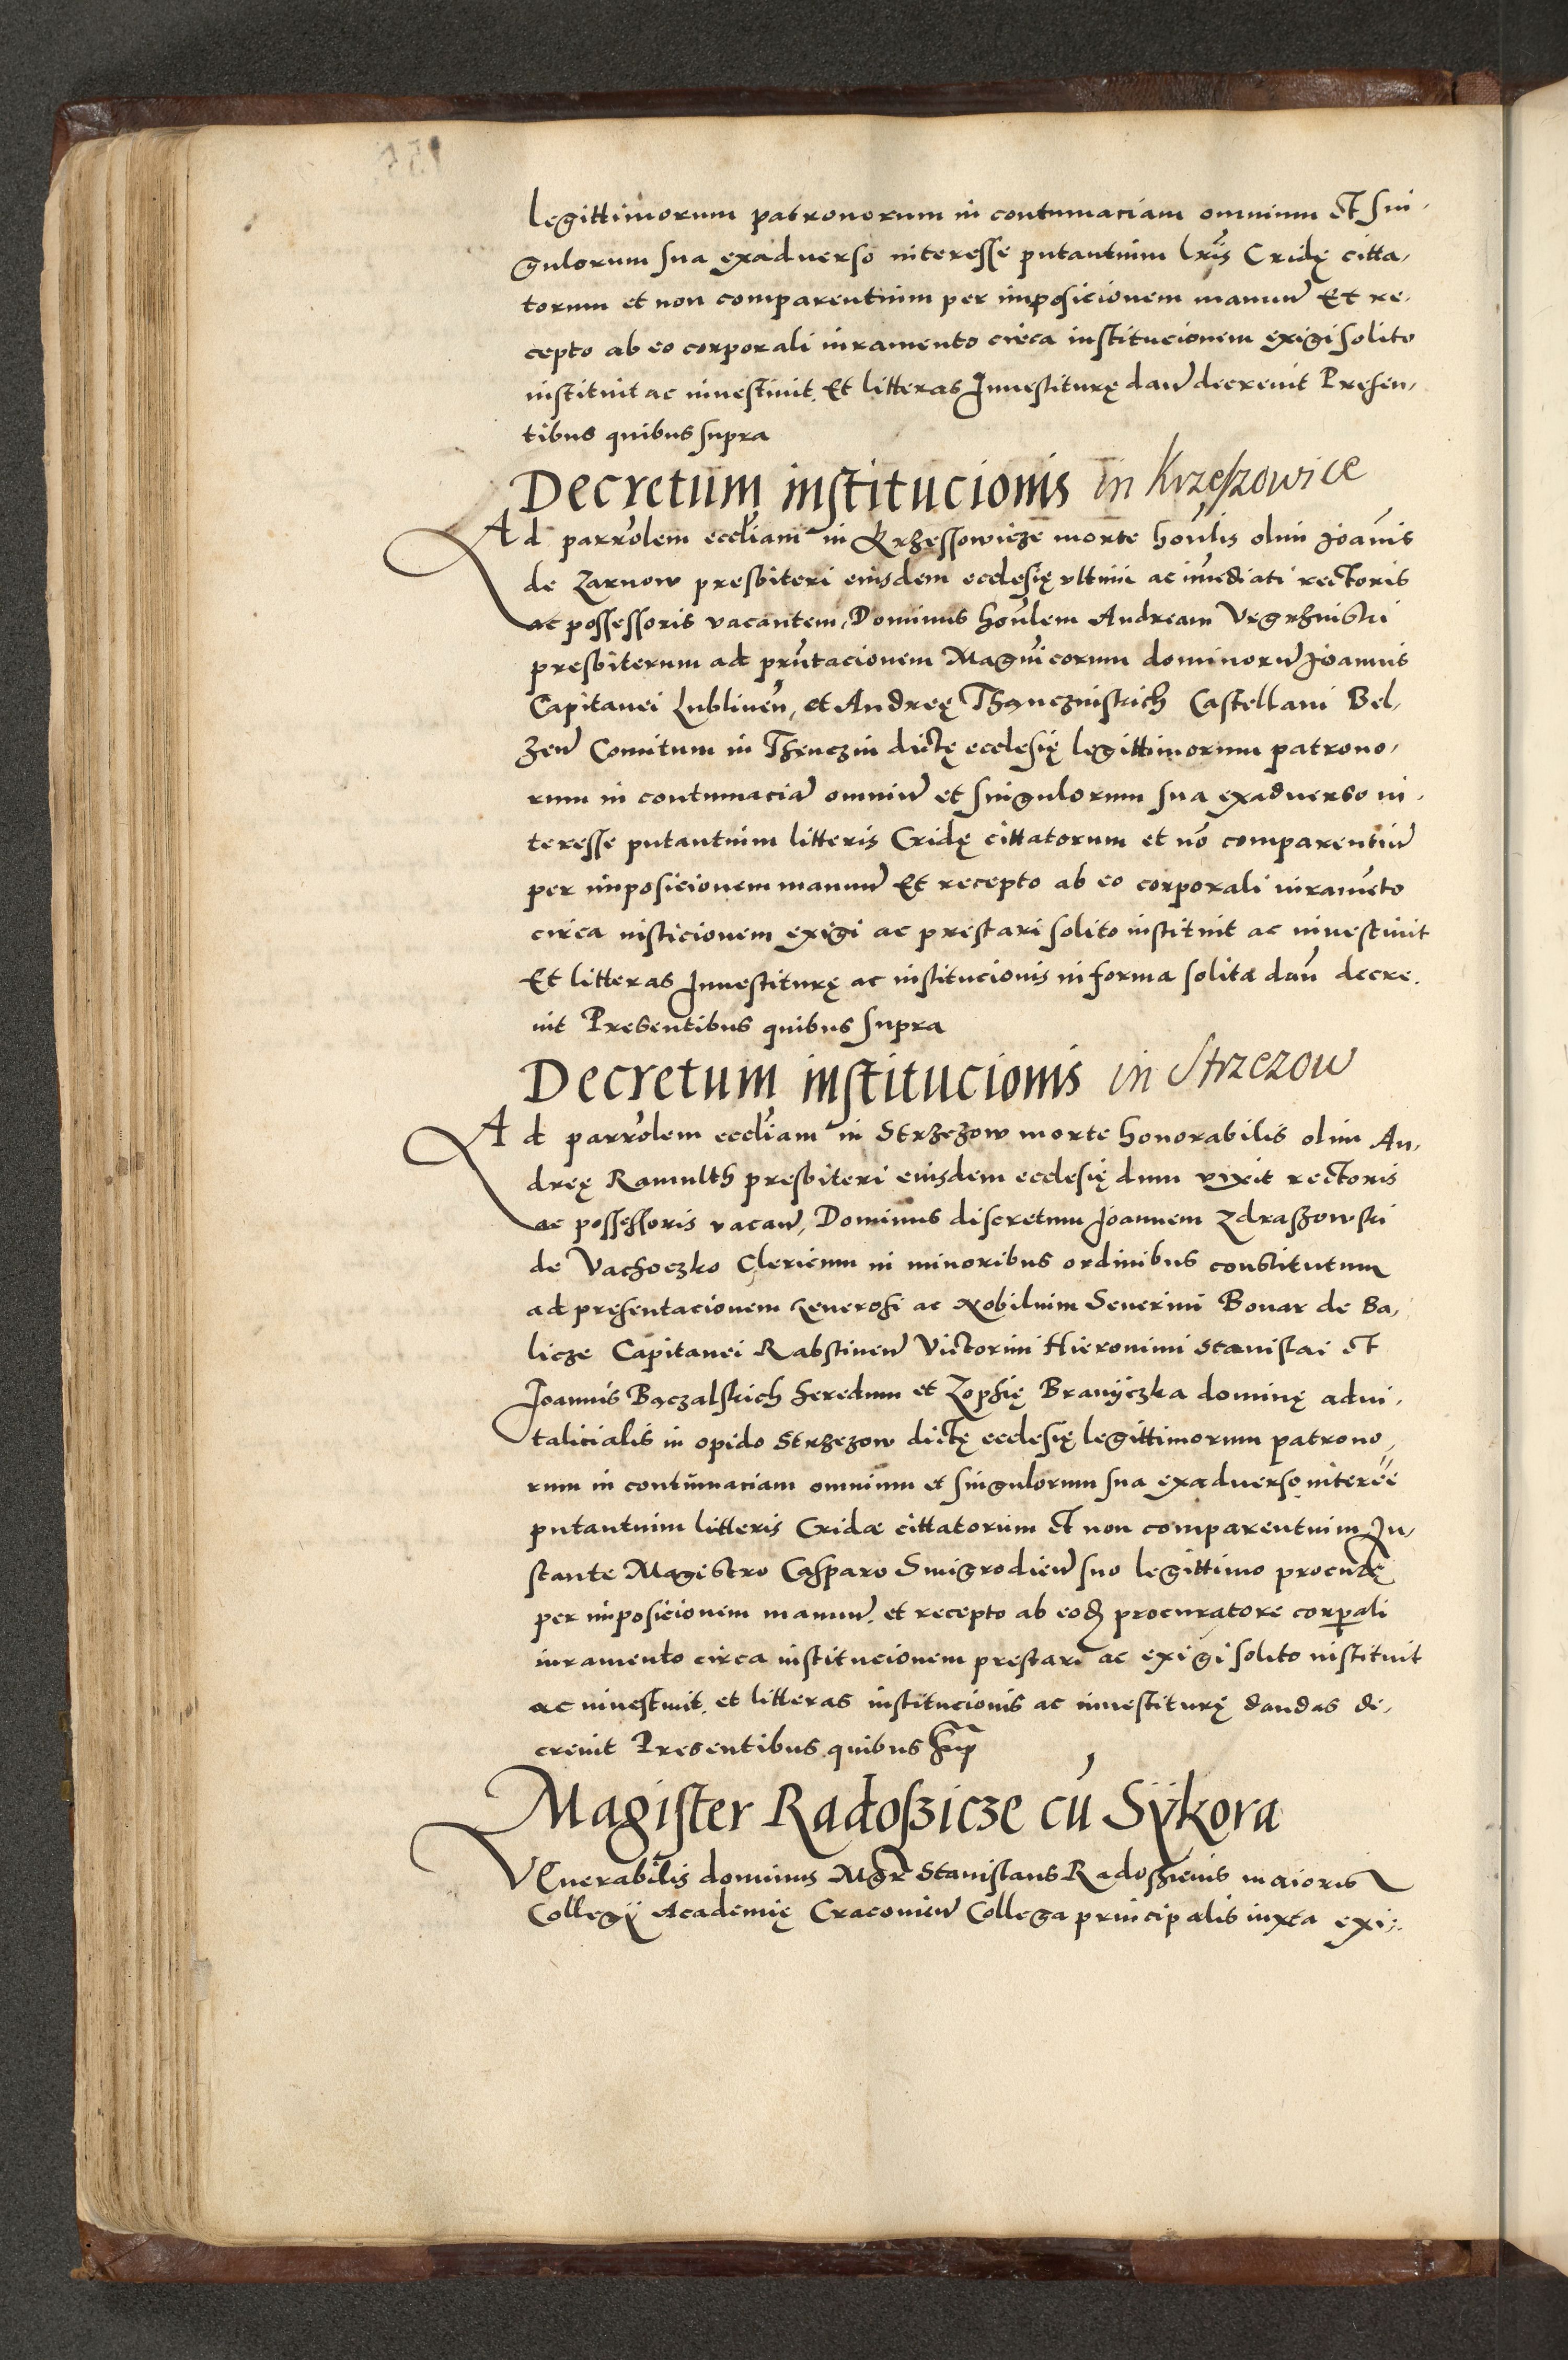 legittimorum patronorum in contumaciam omnium et sin-
gulorum sua exadverso interesse putantium lr̃is Cridę citta-
torum et non comparentium per imposicionem manuũ Et re-
cepto ab eo corporali iuramento circa institucionem exigi solito
instituit ac investivit. Et litteras Investiturę dañ decrevit Presen-
tibus quibus supra
Decretum institucionis in Krzeszowice
Ad parr̃olem eccl̃iam in Krzessowicze morte hoñlis olim Joãnis
de Zarnow presbiteri eiusdem ecclesię ultimi ac im̃ediati rectoris
ac possessoris vacantem, Dominus hoñlem Andream Vegrzinski
presbiterum ad prñtacionem Magñicorum dominorũ Joannis
Capitanei Lublineñ, et Andreę Thęnczinskich Castellani Bel-
zeñ Comitum in Thenczin dictę ecclesię legittimorum patrono-
rum in contumaciã omniũ et singulorum sua exadverso in-
teresse putantium litteris Cridę cittatorum et nõ comparentiũ
per imposicionem manuũ Et recepto ab eo corporali iuramẽto
circa insticionem exigi ac prestari solito instituit ac investivit
Et litteras Investiturę ac institucionis in forma solita dañ decre-
vit Presentibus quibus supra
Decretum institucionis in Strzezow
Ad parr̃olem eccl̃iam in Strzezow morte honorabilis olim An-
dreę Ramulth presbiteri eiusdem ecclesię dum vixit rectoris
ac possessoris vacañ, Dominus discretum Joannem Zdraszowski
de Vachoczko Clericum in minoribus ordinibus constitutum
ad presentacionem Generosi ac Nobilium Severini Bonar de Ba-
licze Capitanei Rabstineñ Victorini Hieronimi Stanislai et
Joannis Bączalskich heredum et Zophię Branyczka dominę advi-
talicialis in opido Strzezow dictę ecclesię legittimorum patrono-
rum in contumaciam omnium et singulorum sua exadverso interẽe
putantium litteris Cridae cittatorum et non comparentium In-
stante Magistro Casparo Smigrodieñ suo legittimo procur̃e
per imposicionem manuũ. et recepto ab eođ procuratore corꝑali
iuramento circa institucionem prestari ac exigi solito instituit
ac investivit. et litteras institucionis ac investiturę dandas de-
crevit Presentibus quibus sup̃
Magister Radoszicze cũ Sÿkora
VEnerabilis dominus Mgr̃ Stanislaus Radoszicius maioris
Collegÿ Academię Cracovieñ Collega principalis iuxta exi-